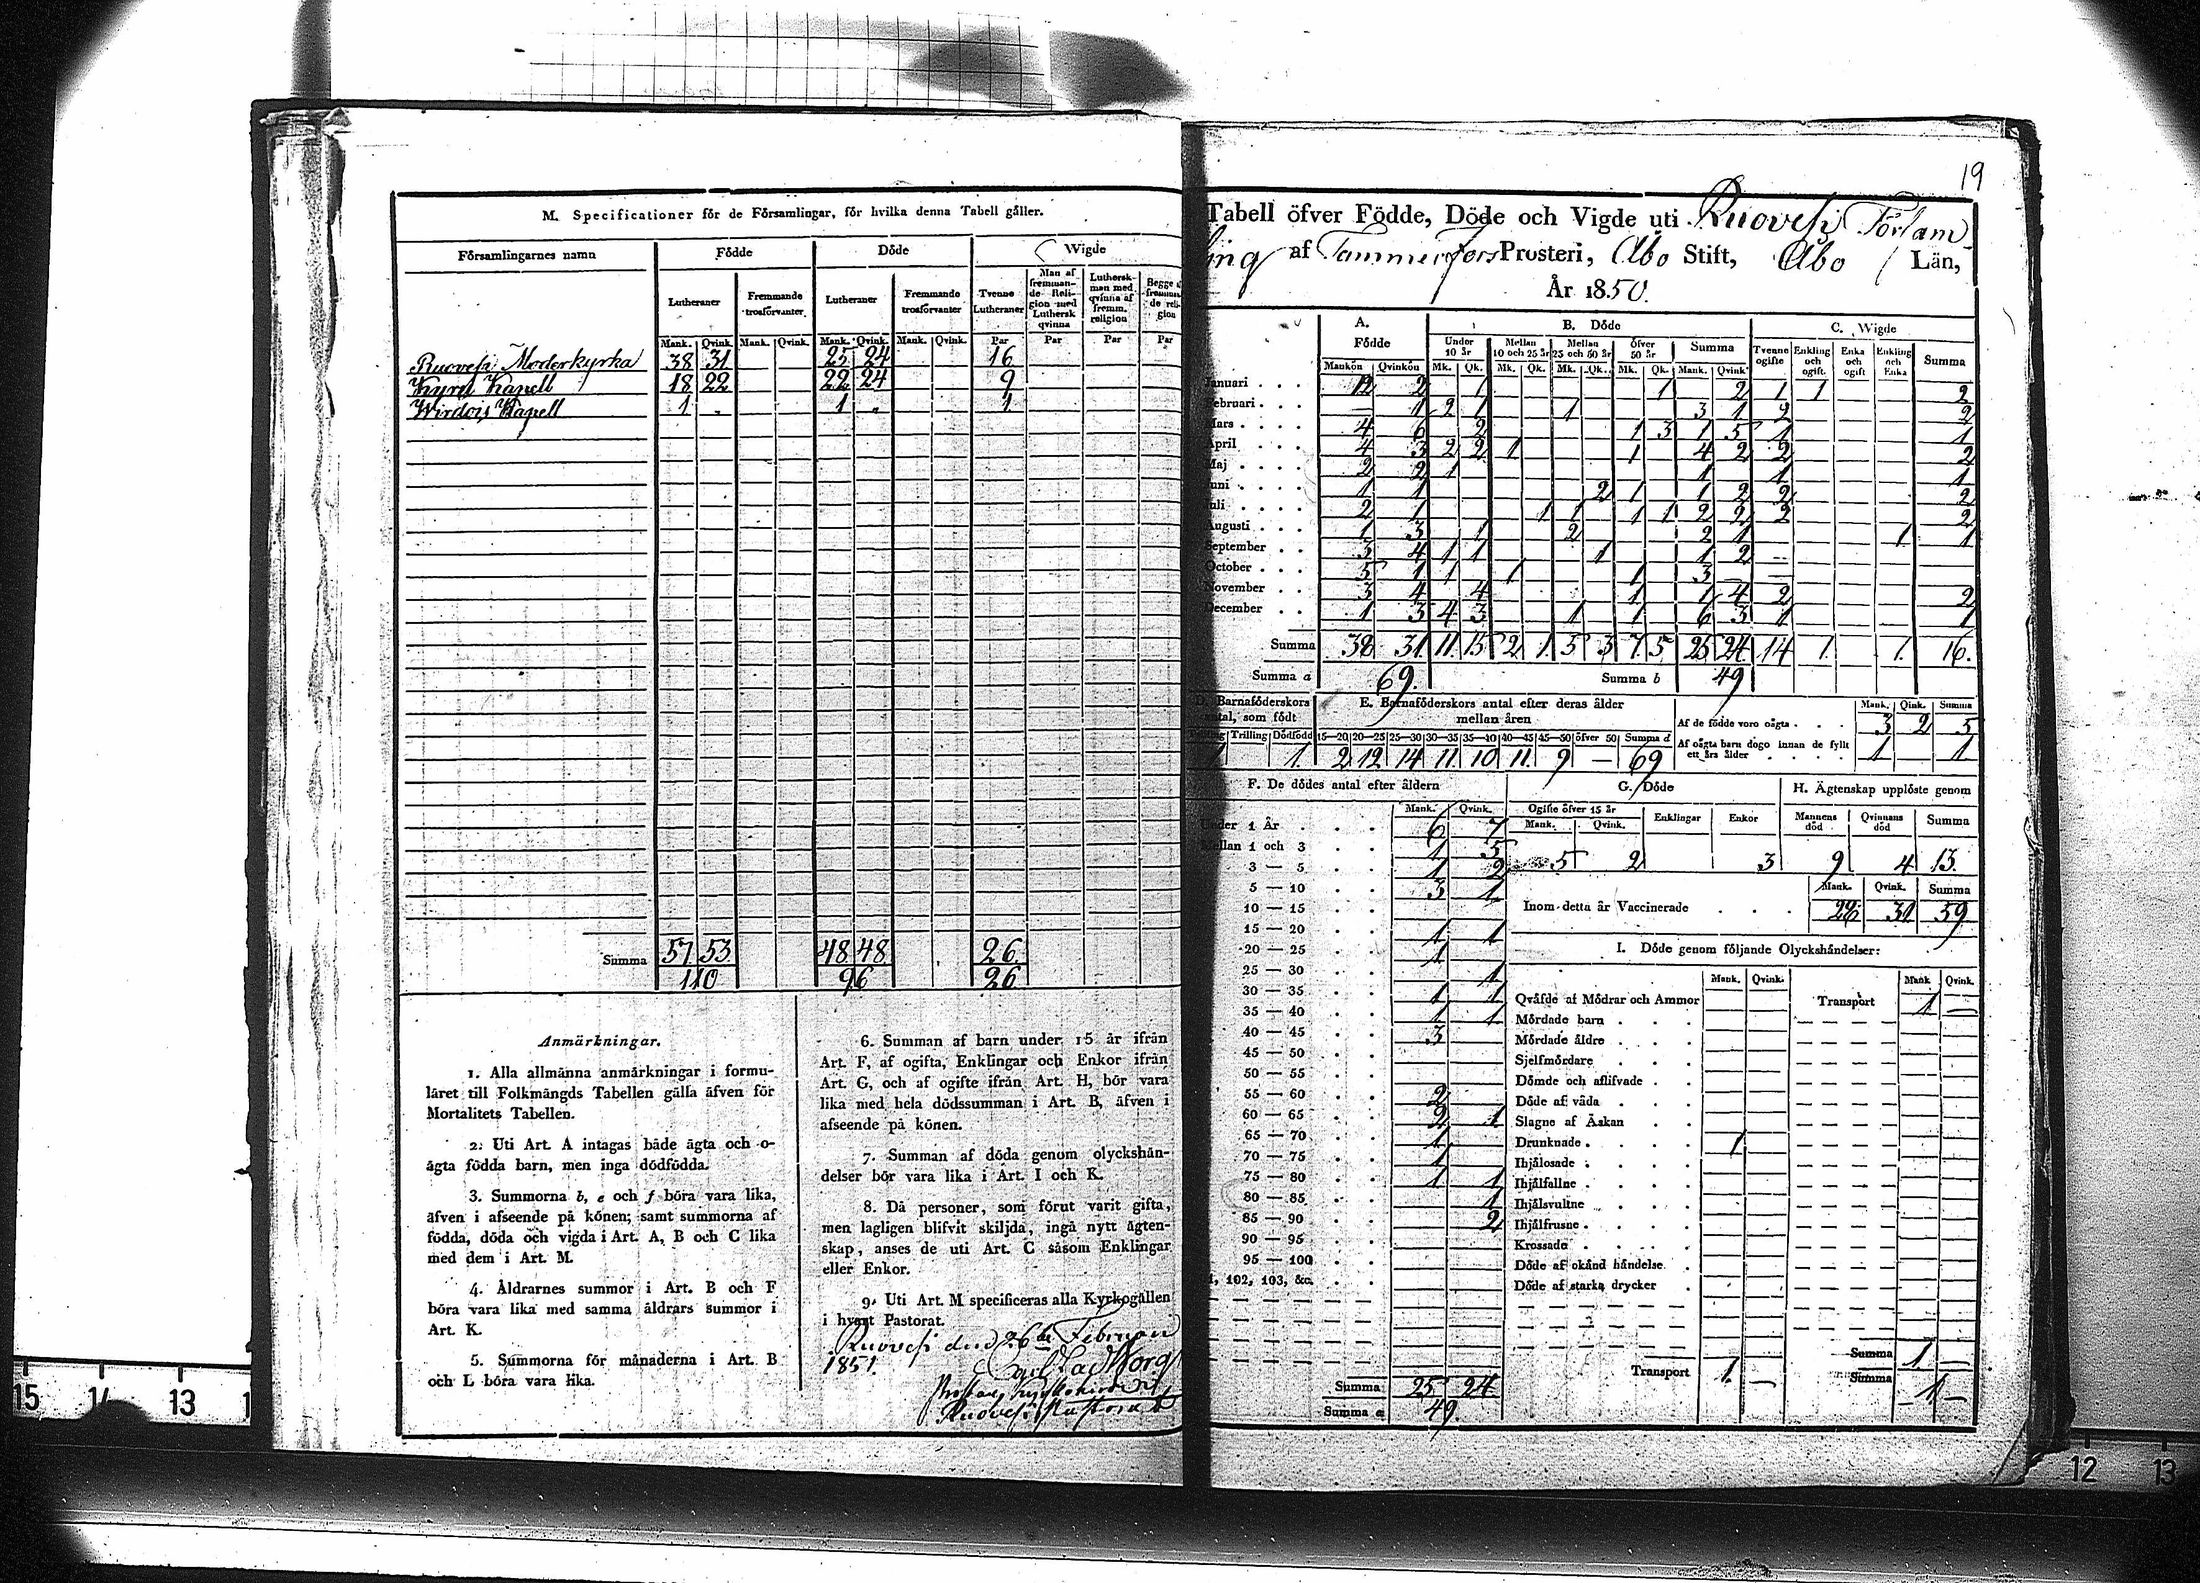 M. Specificationer för de Församlingar, för hvilka denna Tabell gäller.
Församlingarnes namn Födde Döde Wigde
Lutheraner Fremmande trosförvanter Lutheraner Fremmande trosförvanter Tvenne Lutheraner Man af fremmande Religion med Luthersk qvinna Luthersk man med qvinna af fremm. religion Begge
Mank. Qvink. Mank. Qvink. Mank. Qvink. Mank. Qvink. Par Par Par Par
Ruovesi Moderkyrka 38 31 25 24 16
Kyro Kapell 18 22 22 24 9
Wirdois Kapell 1 . 1 . 1
Summa 57 53 48 48 26
110 96 26
Anmärkningar.
1. Alla allmänna anmärkningar i formu-
läret till Folkmängds Tabellen gälla äfven för
Mortalitets Tabellen.
2. Uti Art. A intagas både ägta och o-
ägta födda barn, men inga dödfödda.
3. Summorna b, e och f böra vara lika,
äfven i afseende på könen; samt summorna af
födda, döda och vigda i Art. A, B och C lika
med dem i Art. M.
4. Åldrarnes summor i Art. B och F
böra vara lika med samma åldrars summor i
Art. K.
5. Summorna för månaderna i Art. B
och L böra vara lika.
6. Summan af barn under 15 år ifrån
Art. F, af ogifta, Enklingar och Enkor ifrån
Art. G, och af ogifte ifrån Art. H, bör vara
lika med hela dödssumman i Art. B, äfven i
afseende på könen.
7. Summan af döda genom olyckshän-
delser bör vara lika i Art. I och K.
8. Då personer, som förut varit gifta,
men lagligen blifvit skiljda, ingå nytt ägten-
skap, anses de uti Art. C såsom Enklingar
eller Enkor.
9. Uti Art. M specificeras alla Kyrkogällen
i hvart Pastorat.
Ruovesi den 26te Februari
1851.
Carl
Ruovesi Pastorat
19
Tabell öfver Födde, Döde och Vigde uti Ruovesi Församl
ing af Tammerfors Prosteri, Åbo Stift, Åbo Län,
År 1850.
A. Födde B. Döde C. Wigde
Under 10 år Mellan 10 och 25 år Mellan 25 och 50 år öfver 50 år Summa Tvenne ogifte Enkling och ogift. Enka och ogift Enkling och Enka Summa
Mankön Qvinkön Mk. Qk. Mk. Qk. Mk. Qk. Mk. Qk. Mank. Qvink.
Januari 12 2 1 1 2 1 1 2
Februari 1 2 1 1 3 1 2 2
Mars 4 6 2 1 3 1 5 1 1
April 4 3 2 2 1 1 4 2 2 2
Maj 2 2 1 1 1 1
Juni 1 1 2 1 1 2 2 2
Juli 2 1 1 1 1 1 2 2 2 2
Augusti 1 3 1 2 2 1 1 1
September 3 4 1 1 1 1 2
October 5 1 1 1 1 3
November 3 4 4 1 1 4 2 2
December 1 3 4 3 1 1 6 3 1 1
Summa 38 31 11 15 2 1 5 3 7 5 25 24 14 1 1 16.
Summa a 69. Summa b 49
D. Barnaföderskors antal, som födt
Trilling Dödfödd
1 1.
E. Barnaföderskors antal efter deras ålder mellan åren
15—20 20—25 25—30 30—35 35—40 40—45 45—50 öfver 50 Summa d
2 12 14 11 10 11 9 — 69
Mank. Qink. Summa
Af de födde voro oägta 3 2 5
Af oägta barn dogo innan de fyllt ett års ålder 1 1
F. De dödes antal efter åldern
Mank. Qvink.
Under 1 År 6 7
Mellan 1 och 3 1 5
3 — 5 1 2
5 — 10 3 1
10 — 15
15 — 20 1 1
20 — 25 1
25 — 30 1
30 — 35 1 1
35 — 40 1 1
40 — 45 3
45 — 50
50 — 55
55 — 60 2
60 — 65 2 1
65 — 70 1
70 — 75 1
75 — 80 1 1
80 — 85 1
85 — 90 2
90 — 95
95 — 100
102, 103, &c.
Summa 25 24
Summa e 49.
G. Döde
Ogifte öfver 15 år Enklingar Enkor
Mank. Qvink.
5 2 3
H. Ägtenskap upplöste genom
Mannens död Qvinnans död Summa
9 4 13.
Mank. Qvink. Summa
Inom detta år Vaccinerade 28 31 59
I. Döde genom följande Olyckshändelser:
Mank. Qvink. Mank Qvink.
Qväfde af Mödrar och Ammor Transport 1 —
Mördade barn
Mördade äldre
Sjelfmördare
Dömde och aflifvade
Döde af våda
Slagne af Åskan
Drunknade 1
Ihjälosade
Ihjälfallne
Ihjälsvultne
Ihjälfrusne
Krossade
Döde af okänd händelse
Döde af starka drycker
Summa 1 —
Transport 1 — Summa 1 —
15 14 13 1
12 13